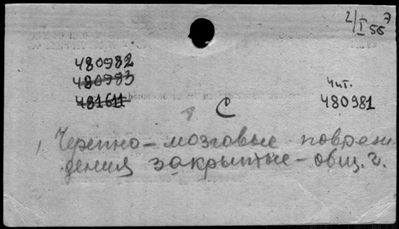 2/I 55
480982
480983
481611
чит.
480981
С
Черепно-мозговые повреж
дения закрытые-общ. г.